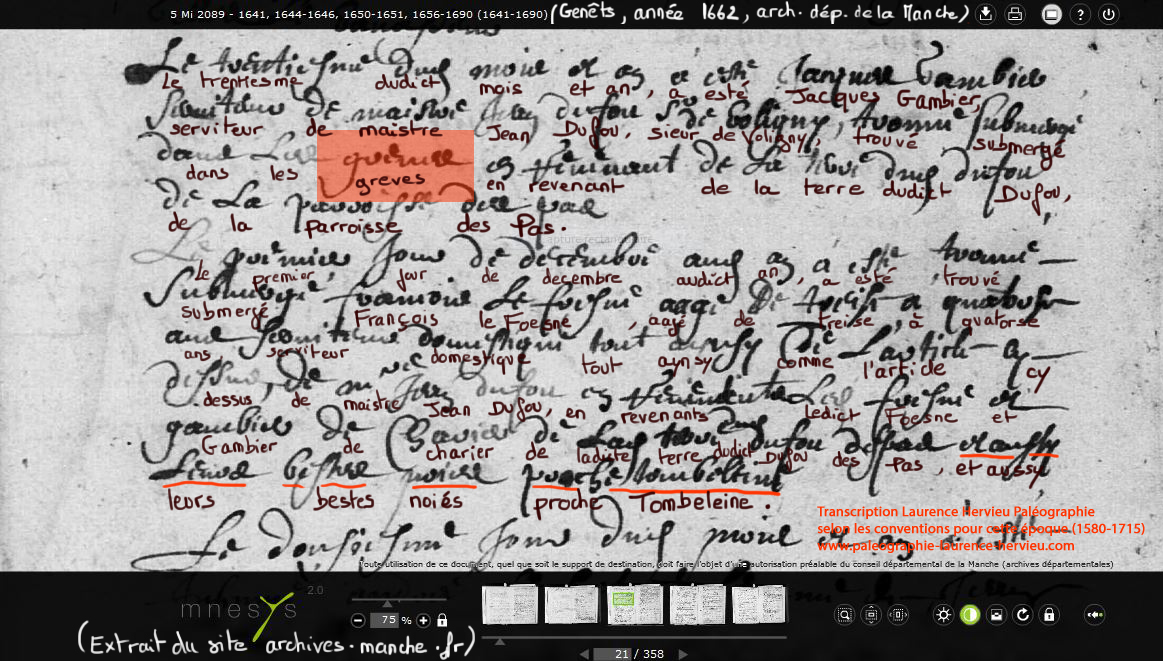 5 Mi 2089 - 1641, 1644-1646, 1650-1651, 1656-1690 (1641-1690) (Genêts, année 1662, arch. dép. de la Manche)
Le trentiesme dudict mois et an, a esté Jacques Gambier,
serviteur de maistre Jean Dufou, sieur de Voligny, trouvé submergé
dans les greves en revenant de la terre dudict Dufou,
de la parroisse des Pas.
Le premier jour de decembre audict an, a esté trouvé
submergé François le Foesne, aagé de treise, à quatorse
ans, serviteur domestique tout aynsy comme l'article cy
dessus, de maistre Jean Dufou, en revenants ledict Foesne et
Gambier de charier de ladiste terre dudict Dufou des Pas, et aussy
leurs bestes noiés proche Tombeleine.
Transcription Laurence Hervieu Paléographie
selon les conventions pour cette époque (1580-1715)
www.paleographie-laurence-hervieu.com
Toute utilisation de ce document, quel que soit le support de destination, doit faire l'objet d'une autorisation préalable du conseil départemental de la Manche (archives départementales)
mnesys 2.0
75 %
(Extrait du site archives.manche.fr)
21 / 358